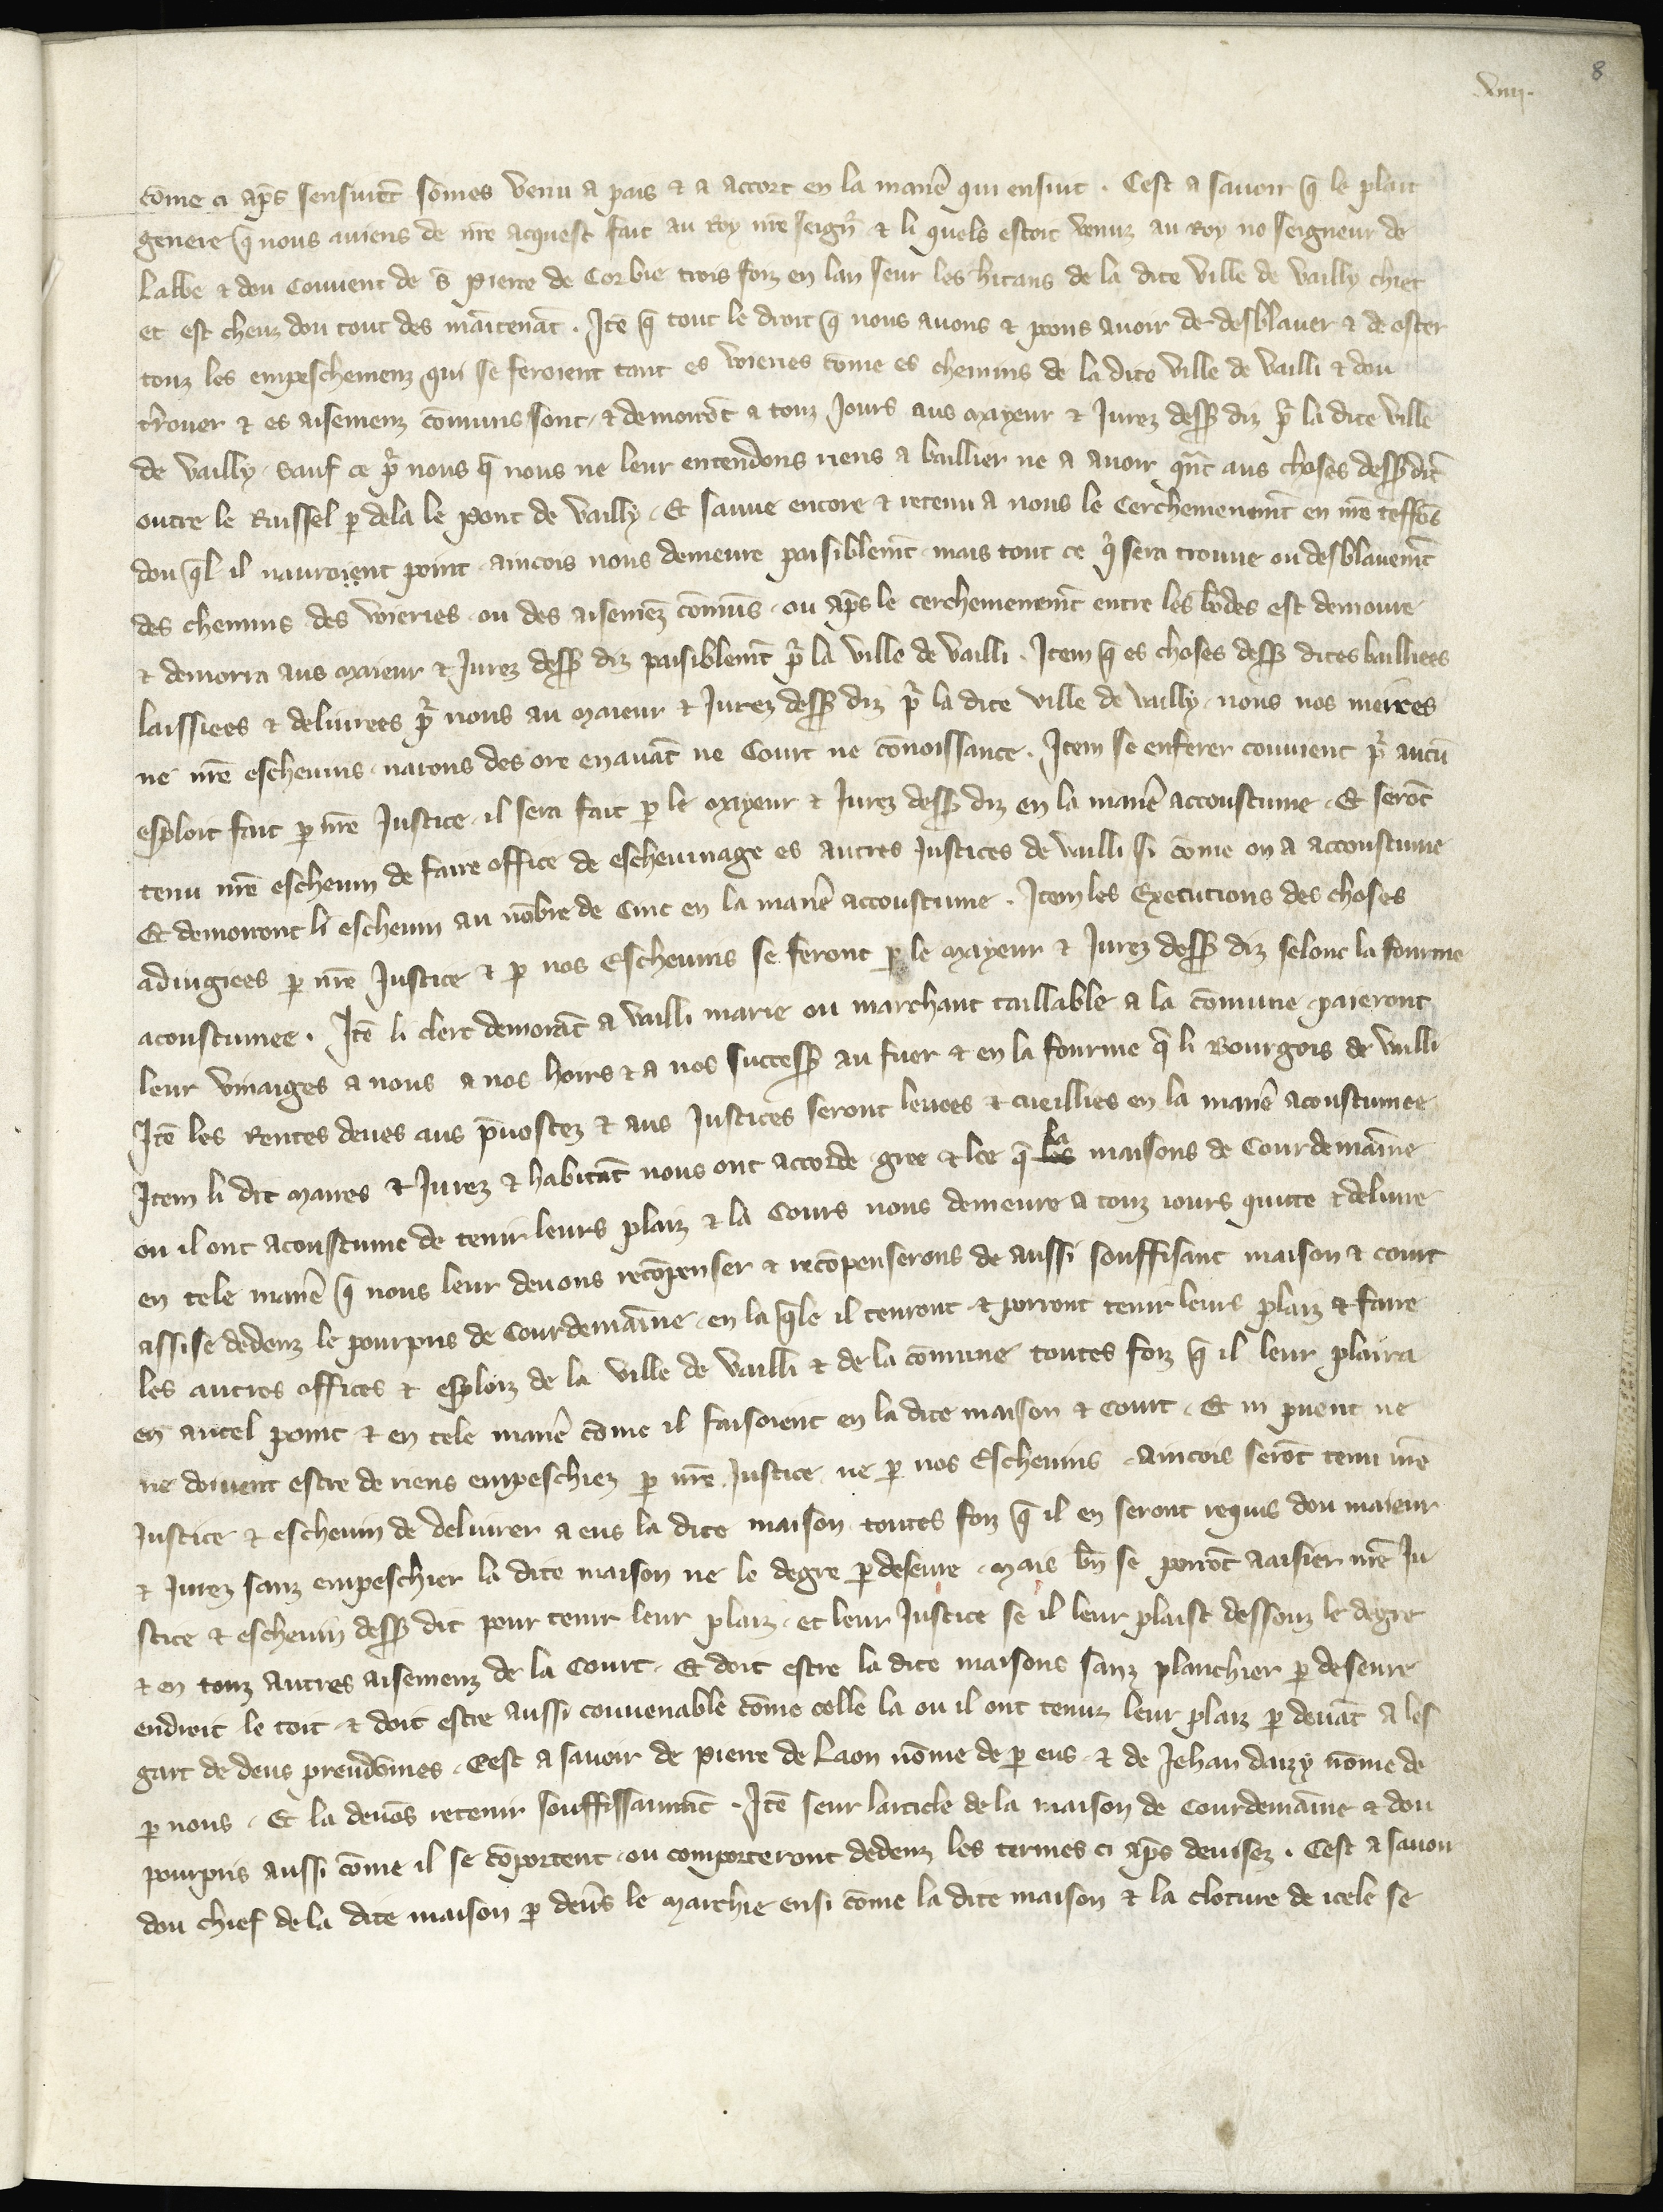 8
viii.
cōme ci ap̄s sensuiēt sōmes venu a pais & a accort en la maniē qui ensiut . Cest a sauoir q̄ le plait
genere q̄ nous auiens de nr̄e acquest fait au Roy nr̄e seign̄r & li quels estoit venuz au Roy no seigneur de
Labbe & dou Couuent de s̄ Pierre de Corbie trois foiz en lan seur les hitans de la dite ville de vailly chiet
et est cheuz dou tout des māitenāt . Itē q̄ tout le droit q̄ nous auons & poons auoir de desblauer & de oster
touz les empeschemenz qui se feroient tant es voieries cōme es chemins de la dite ville de vailli & dou
trouer & es aisemenz cōmuns sont & demorrōt a touz Jours aus mayeur & Jurez dess' diz pr̄ la dite ville
de vailly . Sauf ce pr̄ nous q̄ nous ne leur entendons riens a baillier ne a auoir qn̄t aus choses dess' dit'
outre le Ruissel p dela le Pont de vailly . Et sauue encore & retenu a nous le Cerchemenemt̄ en nr̄e teffōs
dou q̄l il nauroient point aincois nous demeure paisiblemt̄ mais tout ce q̄ sera trouue ou desblauemt̄
des chemins des voieries ou des aisemēz cōmūs . ou ap̄s le cerchemenemt̄ entre les bōdes est demoure
& demorra aus maieur & Jurez dess' diz paisiblemt̄ pr̄ la ville de vailli . Item q̄ es choses dess' dites bailliees
laissiees & deliurees pr̄ nous au maieur & Jurez dess' diz pr̄ la dite ville de vailly nous nos meires
ne nr̄e escheuins . narons des ore enauāt ne Court ne cōnoissance . Item se enferer conuient pr̄ aucū
esploit fait p nr̄e Justice . il sera fait p le mayeur & Jurez dess' diz en la maniē accoustume . Et serōt
tenu nr̄e escheuin de faire office de escheuinage es autres Justices de vailli si cōme on a accoustume
Et demorront li escheuin au nōbre de Cinc en la maniē accoustume . Item les Executions des choses
adiugiees p nr̄e Justice & p nos Escheuins se feront p le mayeur & Jurez dess' diz selonc la fourme
acoustumee . Itē li clerc demorāt a vailli marie ou marchant taillable a la cōmune paieront
leur vinaiges a nous a nos hoirs & a nos success' au fuer & en la fourme q̄ li Bourgois de vailli
Itē les Rentes deues aus p̄uostez & aus Justices seront leuees & cueillies en la maniē acoustumee
Item li dit maires & Jurez & habitāt nous ont accorde gree & lee q̄ la maisons de Courdemāine
ou il ont acoustume de tenir leurs plaiz & la Cours nous demeure a touz iours quitte & deliure
en tele maniē q̄ nous leur deuons recōpenser & recōpenserons de aussi souffisant maison & court
assise dedenz le pourpris de Courdemāine en la q̄le il tenront & porront tenir leurs plaiz & faire
les autres offices & esploiz de la ville de vailli & de la cōmune toutes foiz q̄ il leur plaira
en autel point & en tele maniē cōme il faisoient en la dite maison & court . Et ni puent ne
ne doiuent estre de riens empeschiez p nr̄e Justice ne p nos Escheuins . Aincois serōt tenu nr̄e
Justice & escheuin de deliurer a eus la dite maison toutes foiz q̄ il en seront requis dou maieur
& Jurez sanz empeschier la dite maison ne le degre p deseure . Mais bn̄ se porrōt aaisier nr̄e Ju
stice & escheuin dess' dit pour tenir leur plaiz . et leur Justice se il leur plaist dessouz le degre
& en touz autres aisemenz de la Court . Et doit estre la dite maisons sanz planchier p deseure
endroit le toit & doit estre aussi conuenable cōme celle la ou il ont tenuz leur plaiz p deuāt a les
gart de deus preudōmes . Cest a sauoir de Pierre de Laon nōme de p eus & de Jehan daizy nōme de
p nous . Et la deuōs retenir souffissaumāt . Itē seur larticle de la maison de Courdemāine & dou
pourpris aussi cōme il se cōportent ou comporteront dedenz les termes ci ap̄s deuisez . Cest a sauoir
dou chief de la dite maison p deūs le marchie ensi cōme la dite maison & la cloture de icele se